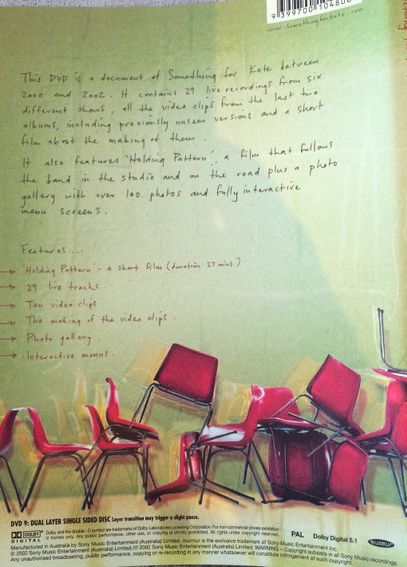 9399700104800
www.somethingforkate.com
This DVD is a document of Something for Kate between
2000 and 2002. It contains 29 live recordings from six
different shows, all the video clips from the last two
albums, including previously unseen versions and a short
film about the making of them.
It also features 'Holding Pattern', a film that follows
the band in the studio and on the road plus a photo
gallery with over 100 photos and fully interactive
menu screens.
Features...
Holding Pattern - a short film (duration 27 mins.)
29 live tracks.
Ten video clips
The making of the video clips.
Photo gallery
Interactive menus.
DVD 9: DUAL LAYER SINGLE SIDED DISC Layer transition may trigger a slight pause.
DOLBY DIGITAL Dolby and the double-D symbol are trademarks of Dolby Laboratories Licensing Corporation. For non-commercial private exhibition
in homes only. Any public performance, other use, or copying is strictly prohibited. All rights under copyright reserved.
PAL Dolby Digital 5.1
Manufactured in Australia by Sony Music Entertainment (Australia) Limited. murmur is the exclusive trademark of Sony Music Entertainment Inc.
© 2002 Sony Music Entertainment (Australia) Limited/℗ 2002 Sony Music Entertainment (Australia) Limited WARNING - Copyright subsists in all Sony Music recordings.
Any unauthorised broadcasting, public performance, copying or re-recording in any manner whatsoever will constitute infringement of such copyright.